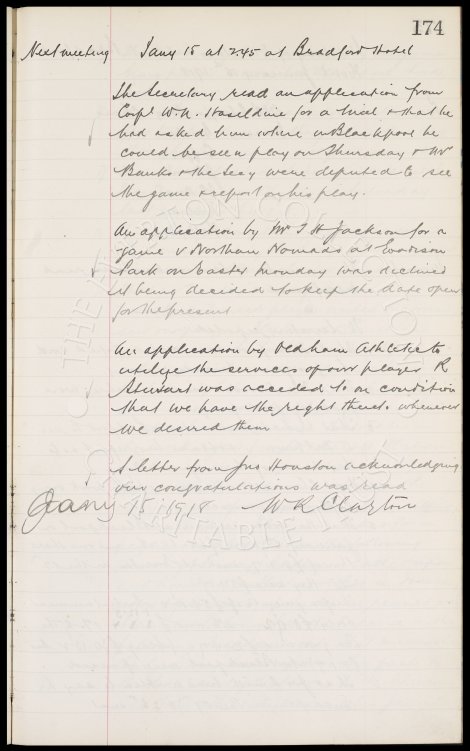 174
Next meeting Jany 15 at 2.45 at Bradford Hotel
The Secretary read an application from
Corpl W.N. Haseldine for a trial & that he
had asked him where in Blackpool he
could be seen play on Thursday & Mr
Banks & the Secy were deputed to see
the game & report on his play.
An application by Mr T H Jackson for a
game v Northern Nomads at Goodison
Park on Easter Monday was declined
it being decided to keep the date open
for the present
An application by Oldham Athletic to
utilize the services of our player R
Stewart was acceded to on condition
that we have the right thereto whenever
we desired them
A letter from Jno Houston acknowledging
our congratulations was read
Jany 15/1918 W R Clayton